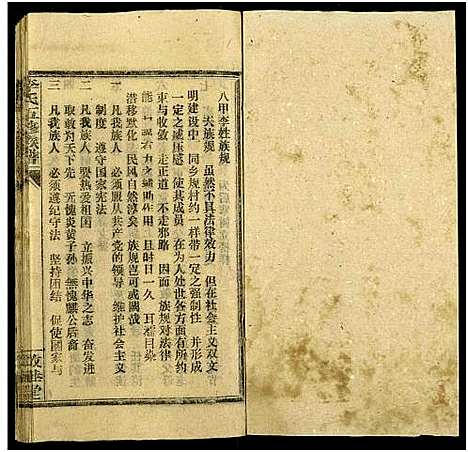 八甲李姓族规
夫族规 虽然不具法律效力 但在社会主义双文
明建设中 同乡规村约一样带一定之强制性 并形成
一定之威压感 使其成员 在为人处世各方面有所约
束与收敛 走正道 不走邪路 因而 族规对法律之
能 起 之辅助作用 且时日一久 耳濡目染
潜移默化 民风自然淳矣 族规岂可或阙哉
一 凡我族人 必须服从共产党的领导 维护社会主义
制度 遵守国家宪法
二 凡我族人 要热爱祖国 立振兴中华之志 奋发进
取敢为天下先 无愧炎黄子孙 无愧麒公后裔
三 凡我族人 必须遵纪守法 坚持团结 促使国家与
李氏五修族谱
敦本堂